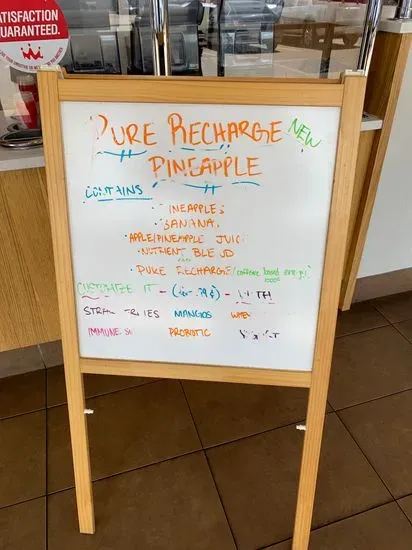 SATISFACTION
GUARANTEED.
PURE RECHARGE NEW
PINEAPPLE
CONTAINS
INEAPPLES
BANANA
APPLE/PINEAPPLE JUIC
NUTRIENT BLE D
PURE RECHARGE/ caffeine based energy
CUSTOMIZE IT - - WITH
STRAW RIES MANGOS WHEY
IMMUNE S PROBIOTIC